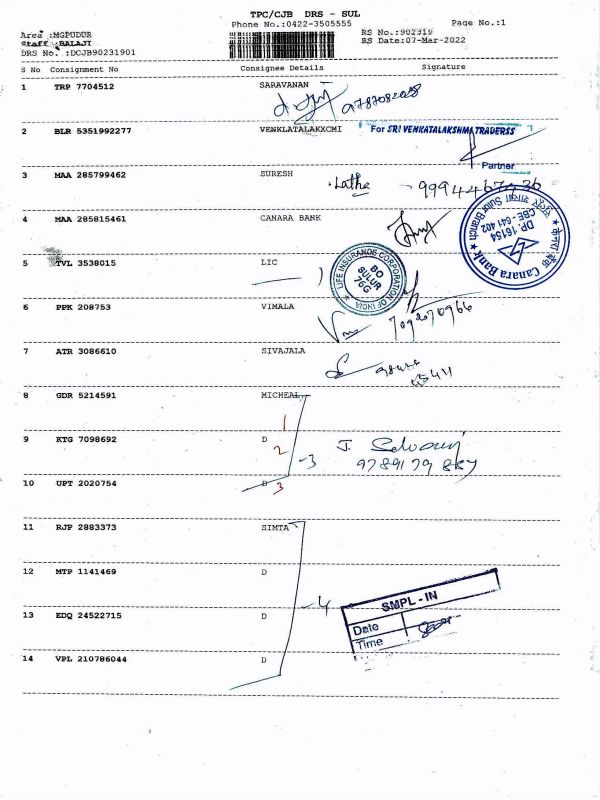 TPC/CJB DRS - SUL
Phone No.:0422-3505555
Page No.:1
Area :MGPUDUR
Staff :BALAJI
DRS No. :DCJB90231901
RS No.:902319
RS Date:07-Mar-2022
S No Consignment No Consignee Details Signature
1 TRP 7704512 SARAVANAN
2 BLR 5351992277 VENKLATALAKXCMI
For SRI VENKATALAKSHMI TRADERSS
Partner
3 MAA 285799462 SURESH Lathe - 9994467236
4 MAA 285815461 CANARA BANK
केनरा बैंक Canara Bank
Sulur Branch
DP. 16154
CBE - 641 402
5 TVL 3538015 LIC
LIFE INSURANCE CORPORATION OF INDIA
BO
SULUR
76G
6 PPK 208753 VIMALA
7092070966
7 ATR 3086610 SIVAJALA
8 GDR 5214591 MICHEAL
1
9 KTG 7098692 D
2
-3
10 UPT 2020754 D 3
11 RJP 2883373 SIMTA
12 MTP 1141469 D
-4
SMPL - IN
Date
Time
13 EDQ 24522715 D
14 VPL 210786044 D